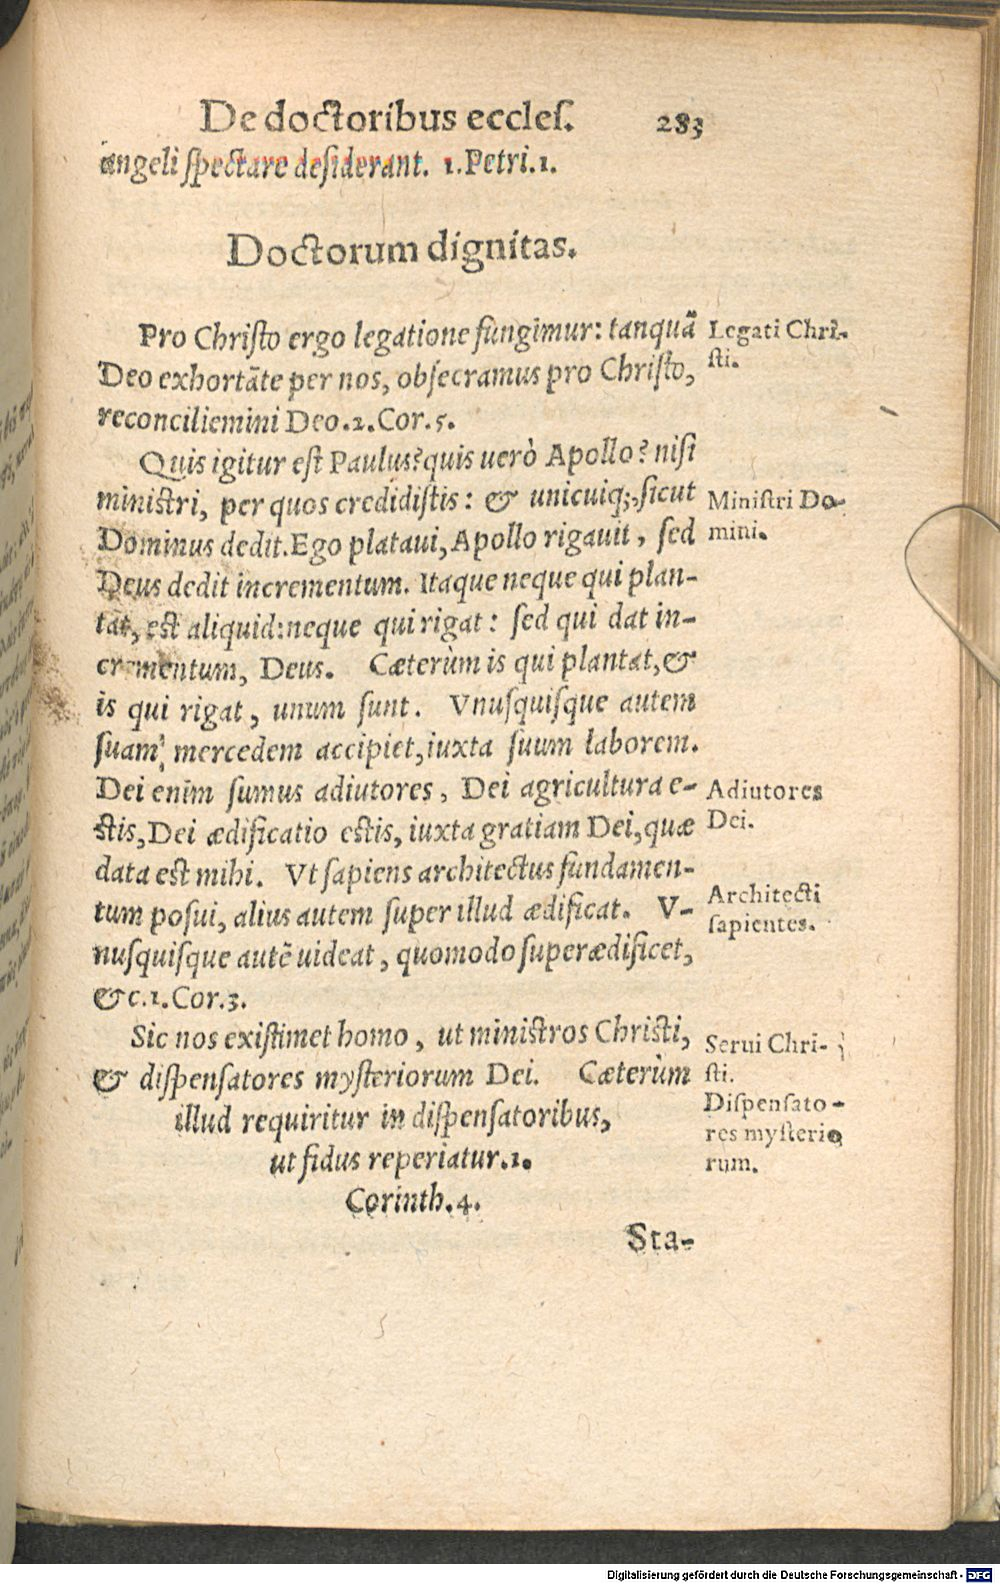 De doctoribus eccles. 283
angeli spectare desiderant. 1. Petri. 1.
Doctorum dignitas.
Pro Christo ergo legatione fungimur: tanquā
Deo exhortāte per nos, obsecramus pro Christo,
reconciliemini Deo. 2. Cor. 5.
Legati Chri-
sti.
Quis igitur est Paulus? quis uerò Apollo? nisi
ministri, per quos credidistis: & unicuiq;, sicut
Dominus dedit. Ego plataui, Apollo rigauit, sed
Deus dedit incrementum. Itaque neque qui plan-
tat, est aliquid: neque qui rigat: sed qui dat in-
crementum, Deus. Cæterùm is qui plantat, &
is qui rigat, unum sunt. Vnusquisque autem
suam mercedem accipiet, iuxta suum laborem.
Dei enim sumus adiutores, Dei agricultura e-
stis, Dei ædificatio estis, iuxta gratiam Dei, quæ
data est mihi. Vt sapiens architectus fundamen-
tum posui, alius autem super illud ædificat. V-
nusquisque autē uideat, quomodo superædificet,
&c. 1. Cor. 3.
Ministri Do-
mini.
Adiutores
Dei.
Architecti
sapientes.
Sic nos existimet homo, ut ministros Christi,
& dispensatores mysteriorum Dei. Cæterùm
illud requiritur in dispensatoribus,
ut fidus reperiatur. 1.
Corinth. 4.
Serui Chri-
sti.
Dispensato-
res mysterio
rum.
Sta-
Digitalisierung gefördert durch die Deutsche Forschungsgemeinschaft - DFG